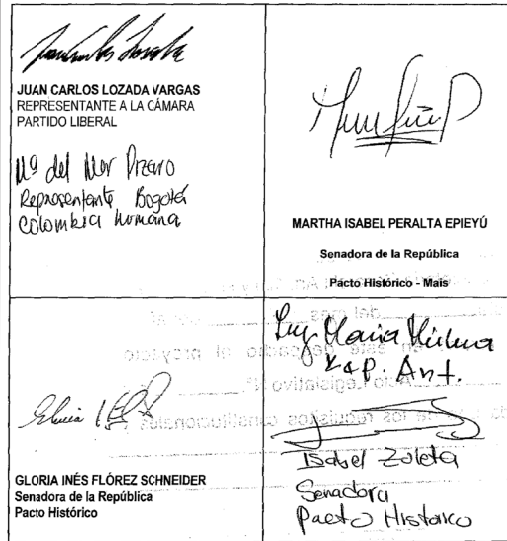 JUAN CARLOS LOZADA VARGAS
REPRESENTANTE A LA CÁMARA
PARTIDO LIBERAL
Mª del Mar Pizarro
Representante Bogotá
Colombia Humana
MARTHA ISABEL PERALTA EPIEYÚ
Senadora de la República
Pacto Histórico - Mais
GLORIA INÉS FLÓREZ SCHNEIDER
Senadora de la República
Pacto Histórico
Luz María Múnera
Rep. Ant.
Isabel Zuleta
Senadora
Pacto Histórico